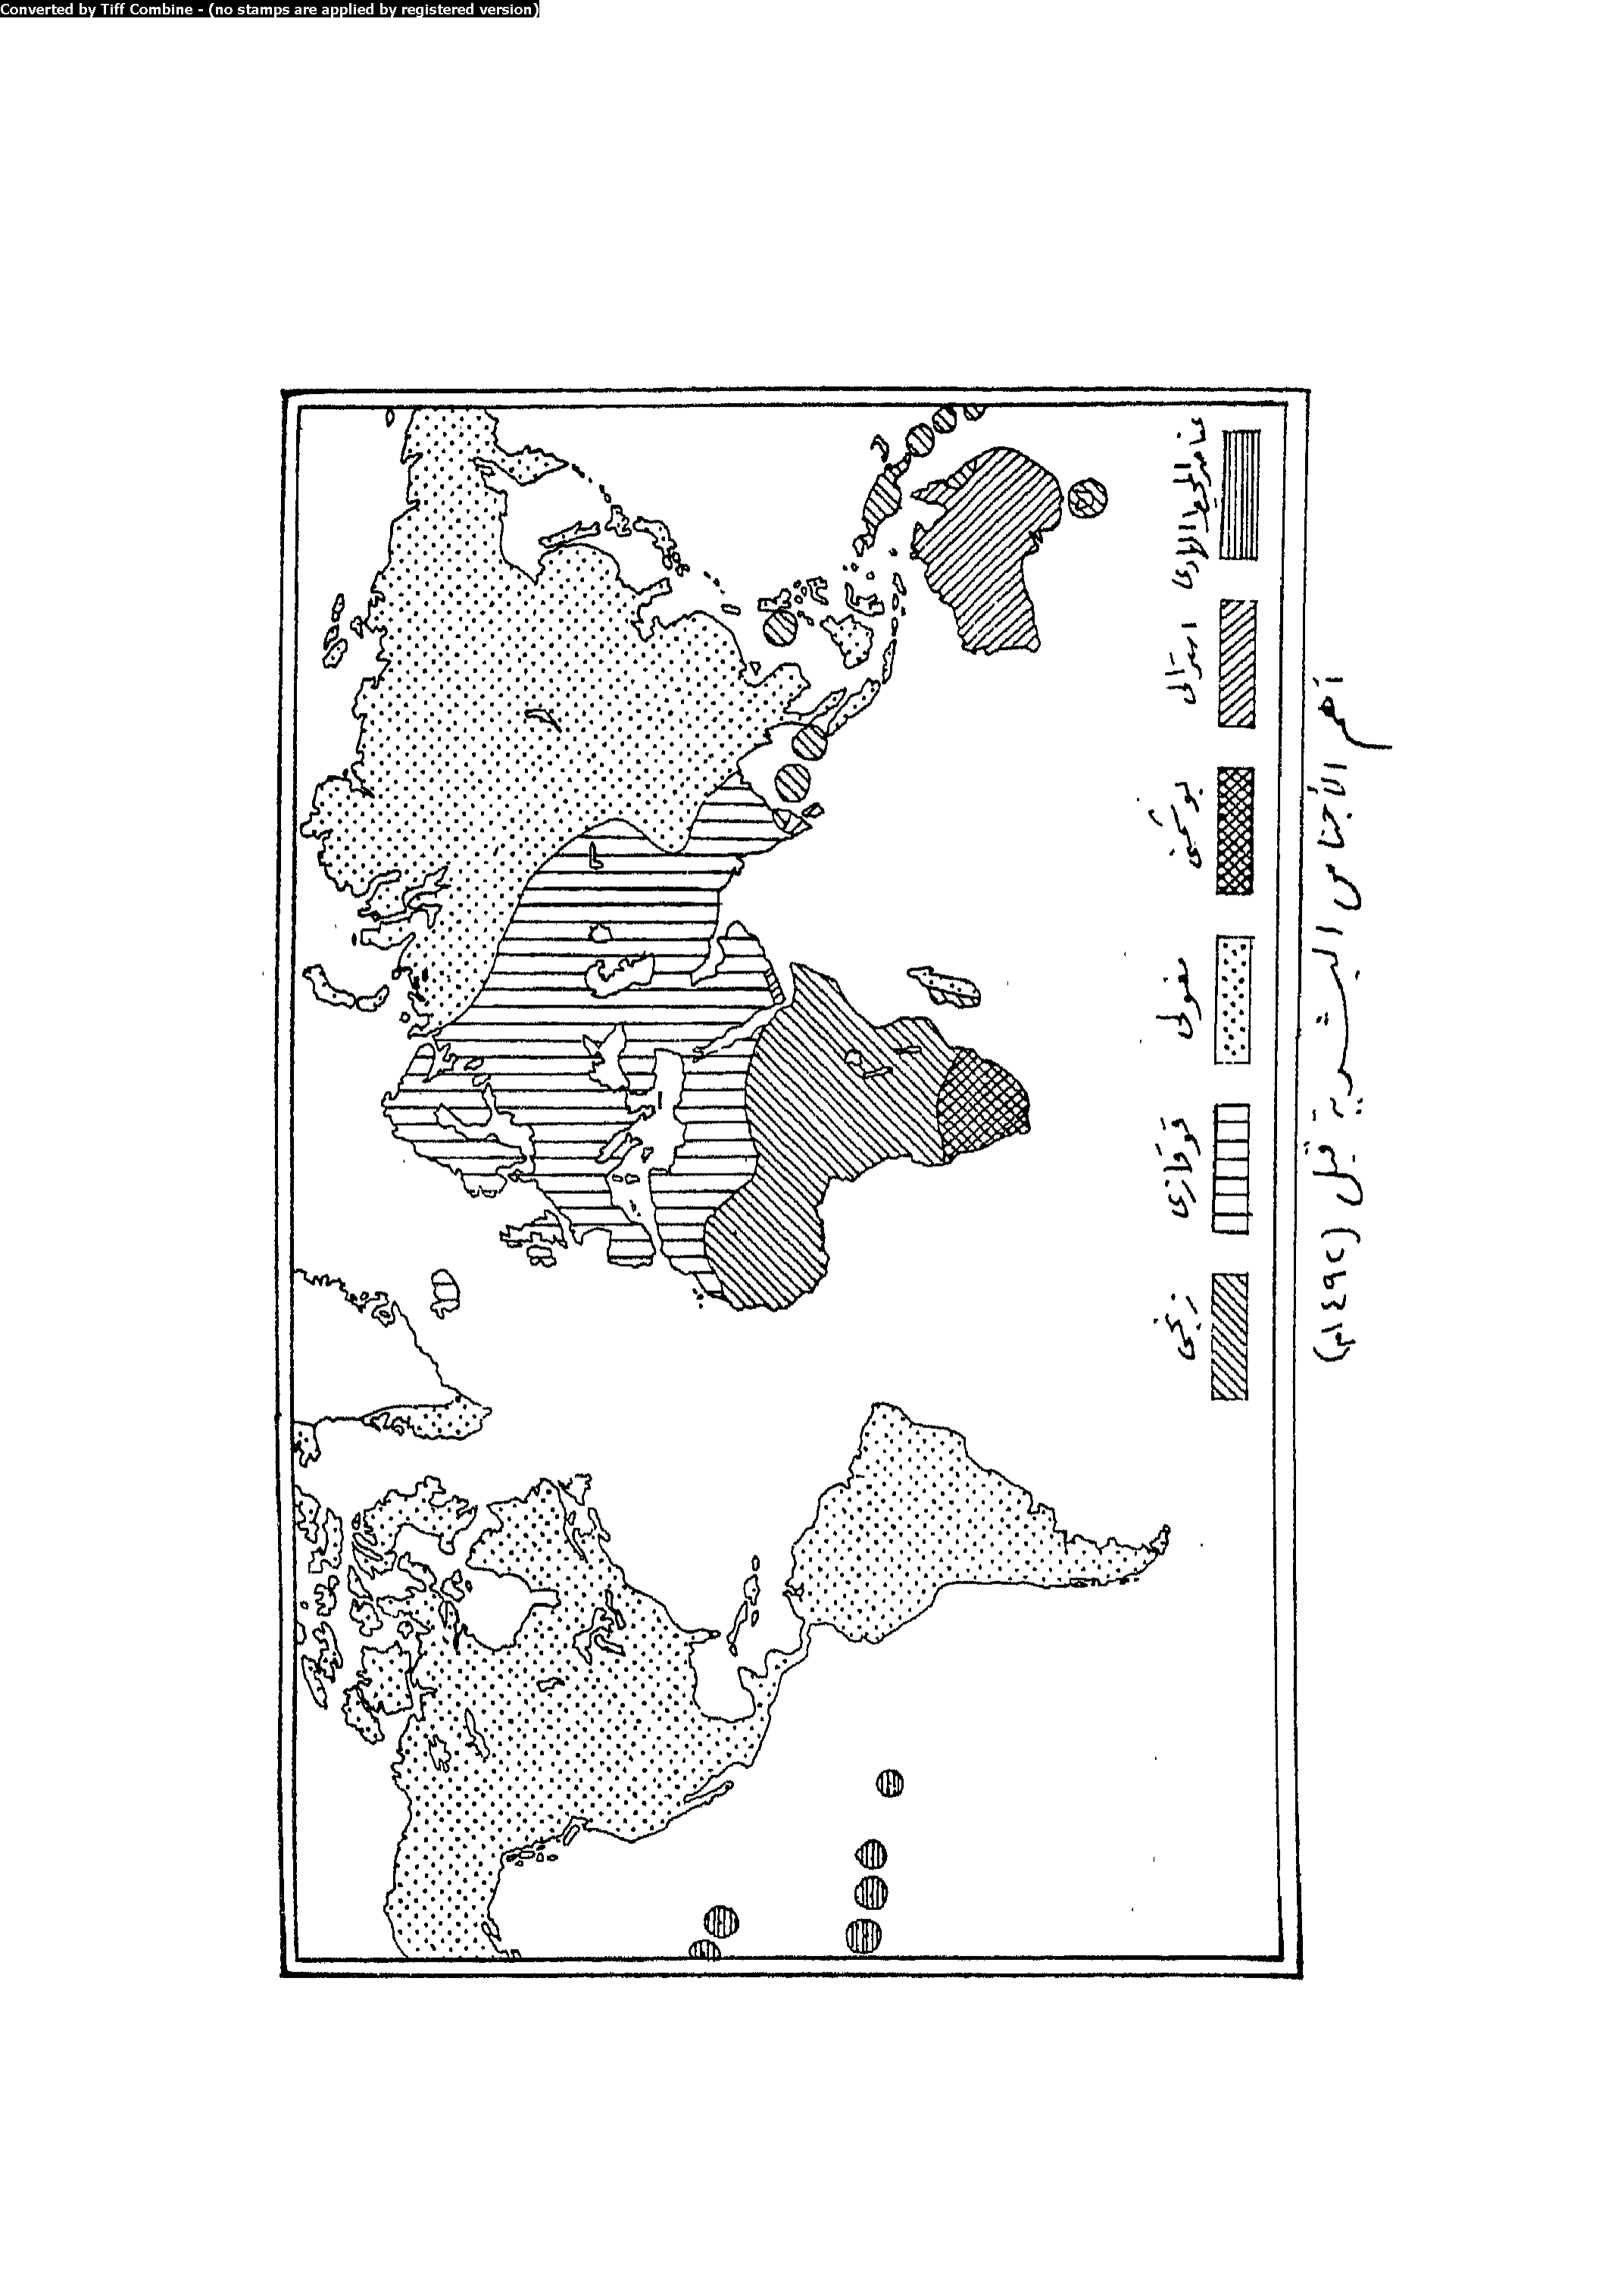 Converted by Tiff Combine - (no stamps are applied by registered version)
عناصر المحيط الهادى
استرالى
بوشمنى
مغولى
قوقازى
زنجى
أهم الأجناس البشرية قبل (١٤٩٢م)